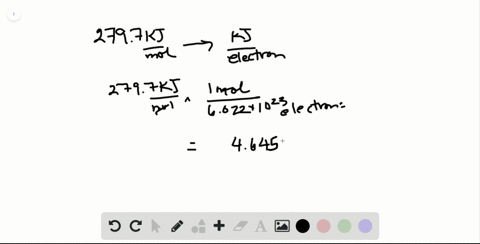 279.7 KJ/mol → KJ/electron
279.7 KJ/mol × 1 mol/6.022×10²³ electrons
= 4.645